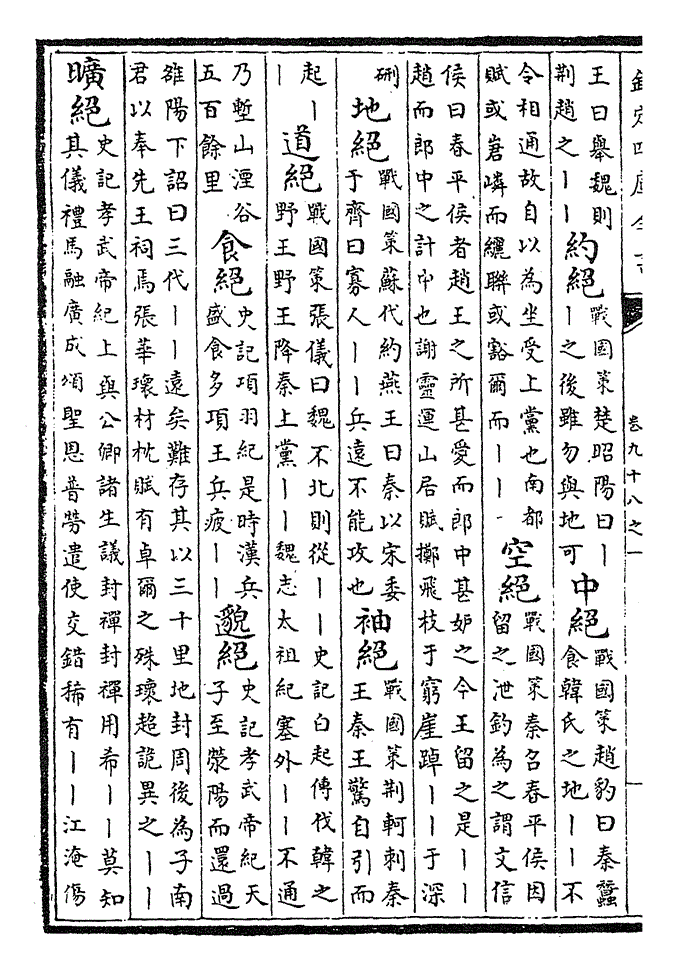 欽定四庫全書
卷九十八之一
王曰舉魏則
荆趙之丨丨
約絕
戰國策楚昭陽曰丨
丨之後雖勿與地可
中絕
戰國策趙豹曰秦蠶
食韓氏之地丨丨不
令相通故自以為坐受上黨也南都
賦或㟅嶙而纚聯或豁爾而丨丨
空絕
戰國策秦召春平侯因
留之泄鈞為之謂文信
侯曰春平侯者趙王之所甚愛而郎中甚妒之今王留之是丨丨
趙而郎中之計中也謝靈運山居賦擲飛枝于窮崖踔丨丨于深
硎
地絕
戰國策蘇代約燕王曰秦以宋委
于齊曰寡人丨丨兵遠不能攻也
袖絕
戰國策荆軻刺秦
王秦王驚自引而
起丨
丨
道絕
戰國策張儀曰魏不北則從丨丨史記白起傳伐韓之
野王野王降秦上黨丨丨魏志太祖紀塞外丨丨不通
乃塹山湮谷
五百餘里
食絕
史記項羽紀是時漢兵
盛食多項王兵疲丨丨
邈絕
史記孝武帝紀天
子至滎陽而還過
雒陽下詔曰三代丨丨遠矣難存其以三十里地封周後為子南
君以奉先王祠焉張華瓌材枕賦有卓爾之殊瓌超詭異之丨丨
曠絕
史記孝武帝紀上與公卿諸生議封禪封禪用希丨丨莫知
其儀禮馬融廣成頌聖恩普勞遣使交錯稀有丨丨江淹傷